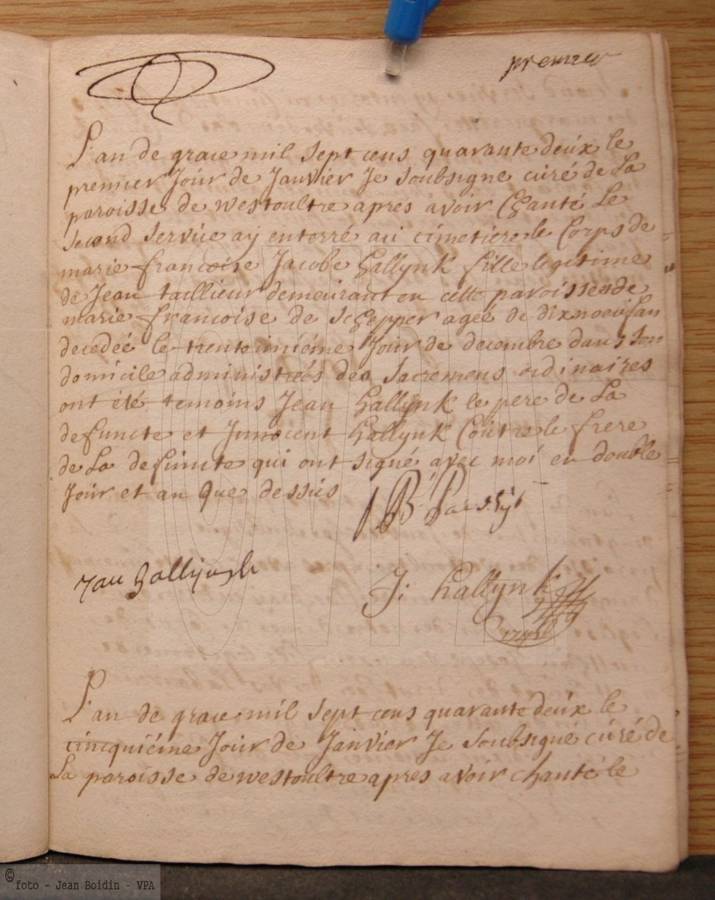 premier
L'an de grace mil sept cens quarante deux le
premier Jour de Janvier Je soubsigné curé de La
paroisse de westoultre apres avoir chanté Le
second service ay enterré au cimetiere le Corps de
marie francoise Jacobe hallynk fille legitime
de Jean taillieur demeurant en cette paroisse et de
marie francoise de schepper agée de dixneuf an
decedeé le trenteuniéme Jour de decembre dans son
domicile administreés des sacremens ordinaires
ont été temoins Jean hallynk le pere de La
defuncte et Innocent hallynk Coutre le frere
de La defuncte qui ont signé avec moi en double
Jour et an que dessus
Jan hallynck
J: hallynk
L'an de grace mil sept cens quarante deux le
cincquiéme Jour de Janvier Je soubsigné curé de
La paroisse de westoultre apres avoir chanté le
© foto - Jean Boidin - VPA